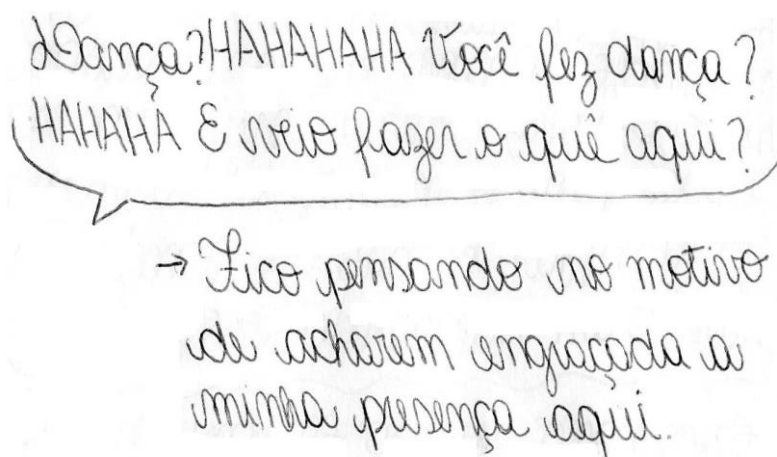 Dança? HAHAHAHA Você fez dança?
HAHAHA E veio fazer o quê aqui?
→ Fico pensando no motivo
de acharem engraçada a
minha presença aqui.